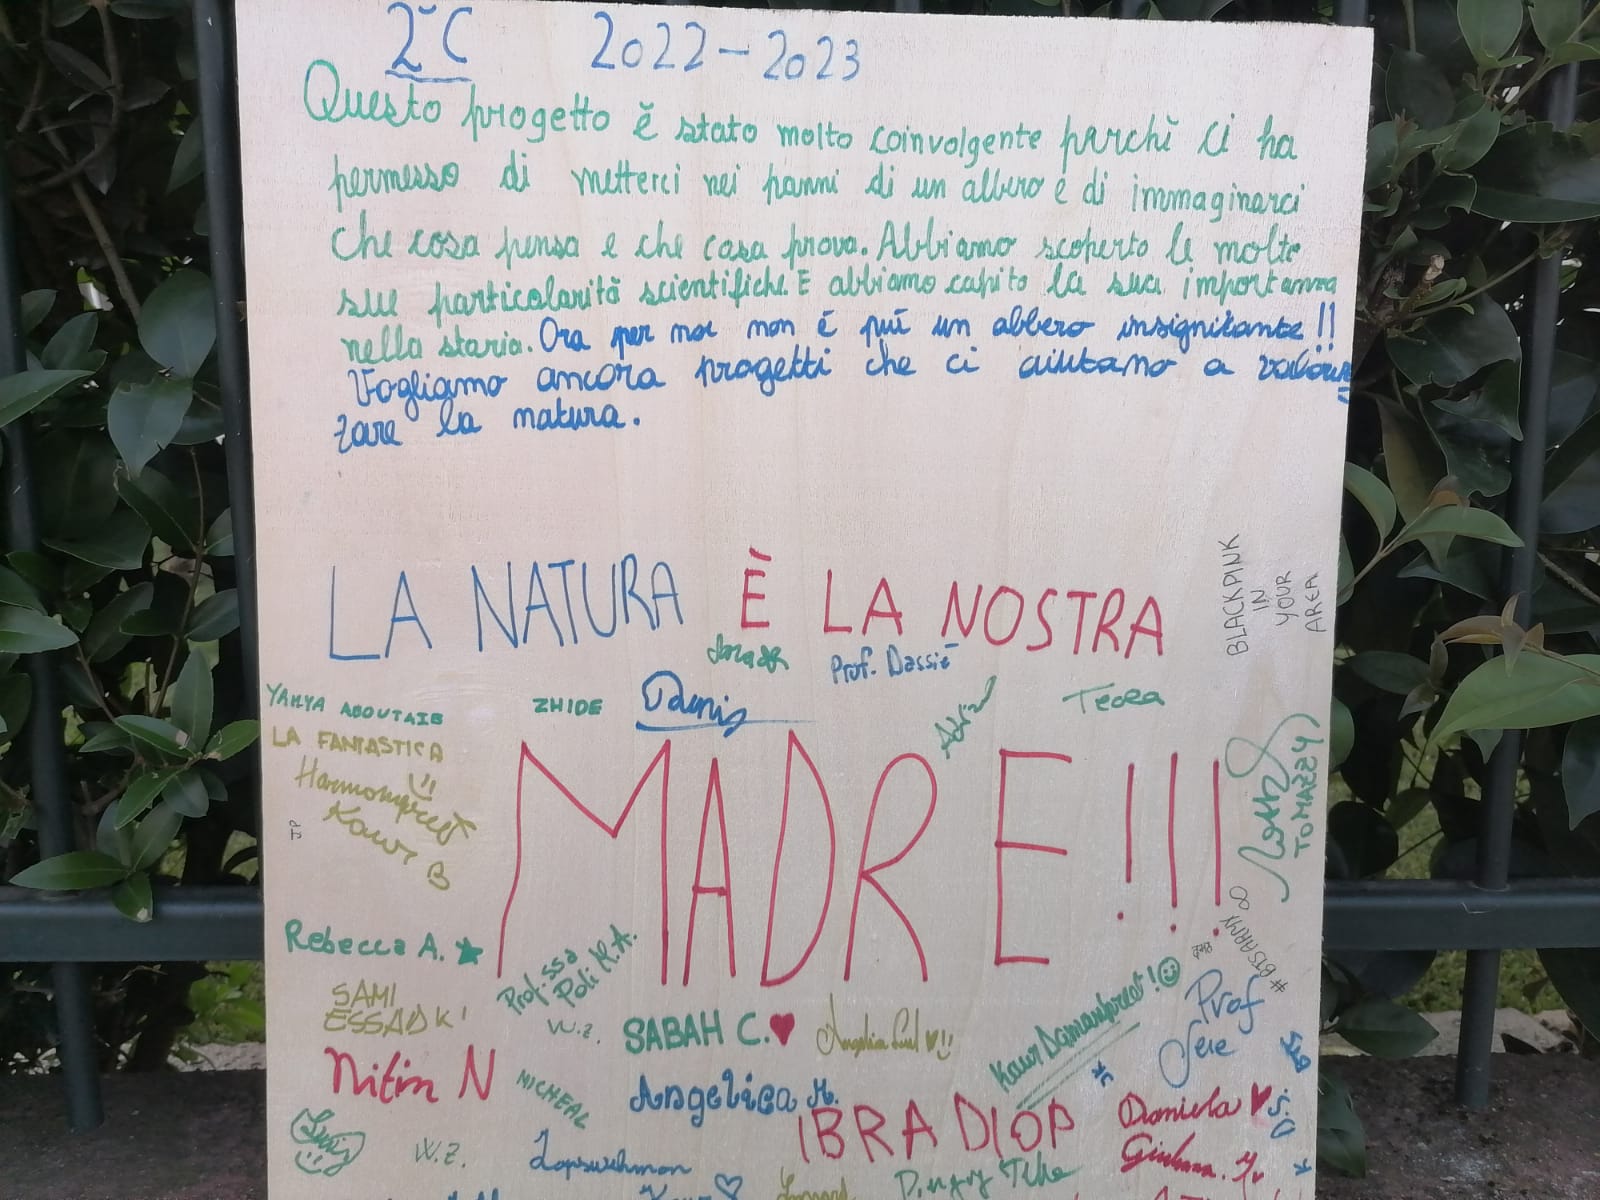 2ªC 2022-2023
Questo progetto è stato molto coinvolgente perchè ci ha
permesso di metterci nei panni di un albero e di immaginarci
che cosa pensa e che cosa prova. Abbiamo scoperto le molte
sue particolarità scientifiche. E abbiamo capito la sua importanza
nella storia. Ora per noi non è più un albero insignificante!!
Vogliamo ancora progetti che ci aiutano a valoriz=
zare la natura.
LA NATURA È LA NOSTRA
BLACKPINK
IN
YOUR
AREA
Prof. Dassiè
YAHYA ABOUTAIB
ZHIDE
Denis
Teora
LA FANTASTICA
Harmanpreet
Kaur B
JP
MADRE!!!
TOMAZZY
#BTSARMY
Rebecca A.
Prof.ssa
Poli M.A.
SAMI
ESSADKI
W.Z.
SABAH C.
Kaur Damanpreet!
Prof
Nitin N
MICHEAL
Angelica M.
IBRA DIOP
Daniela
Giuliana.
D.S.
W.Z.